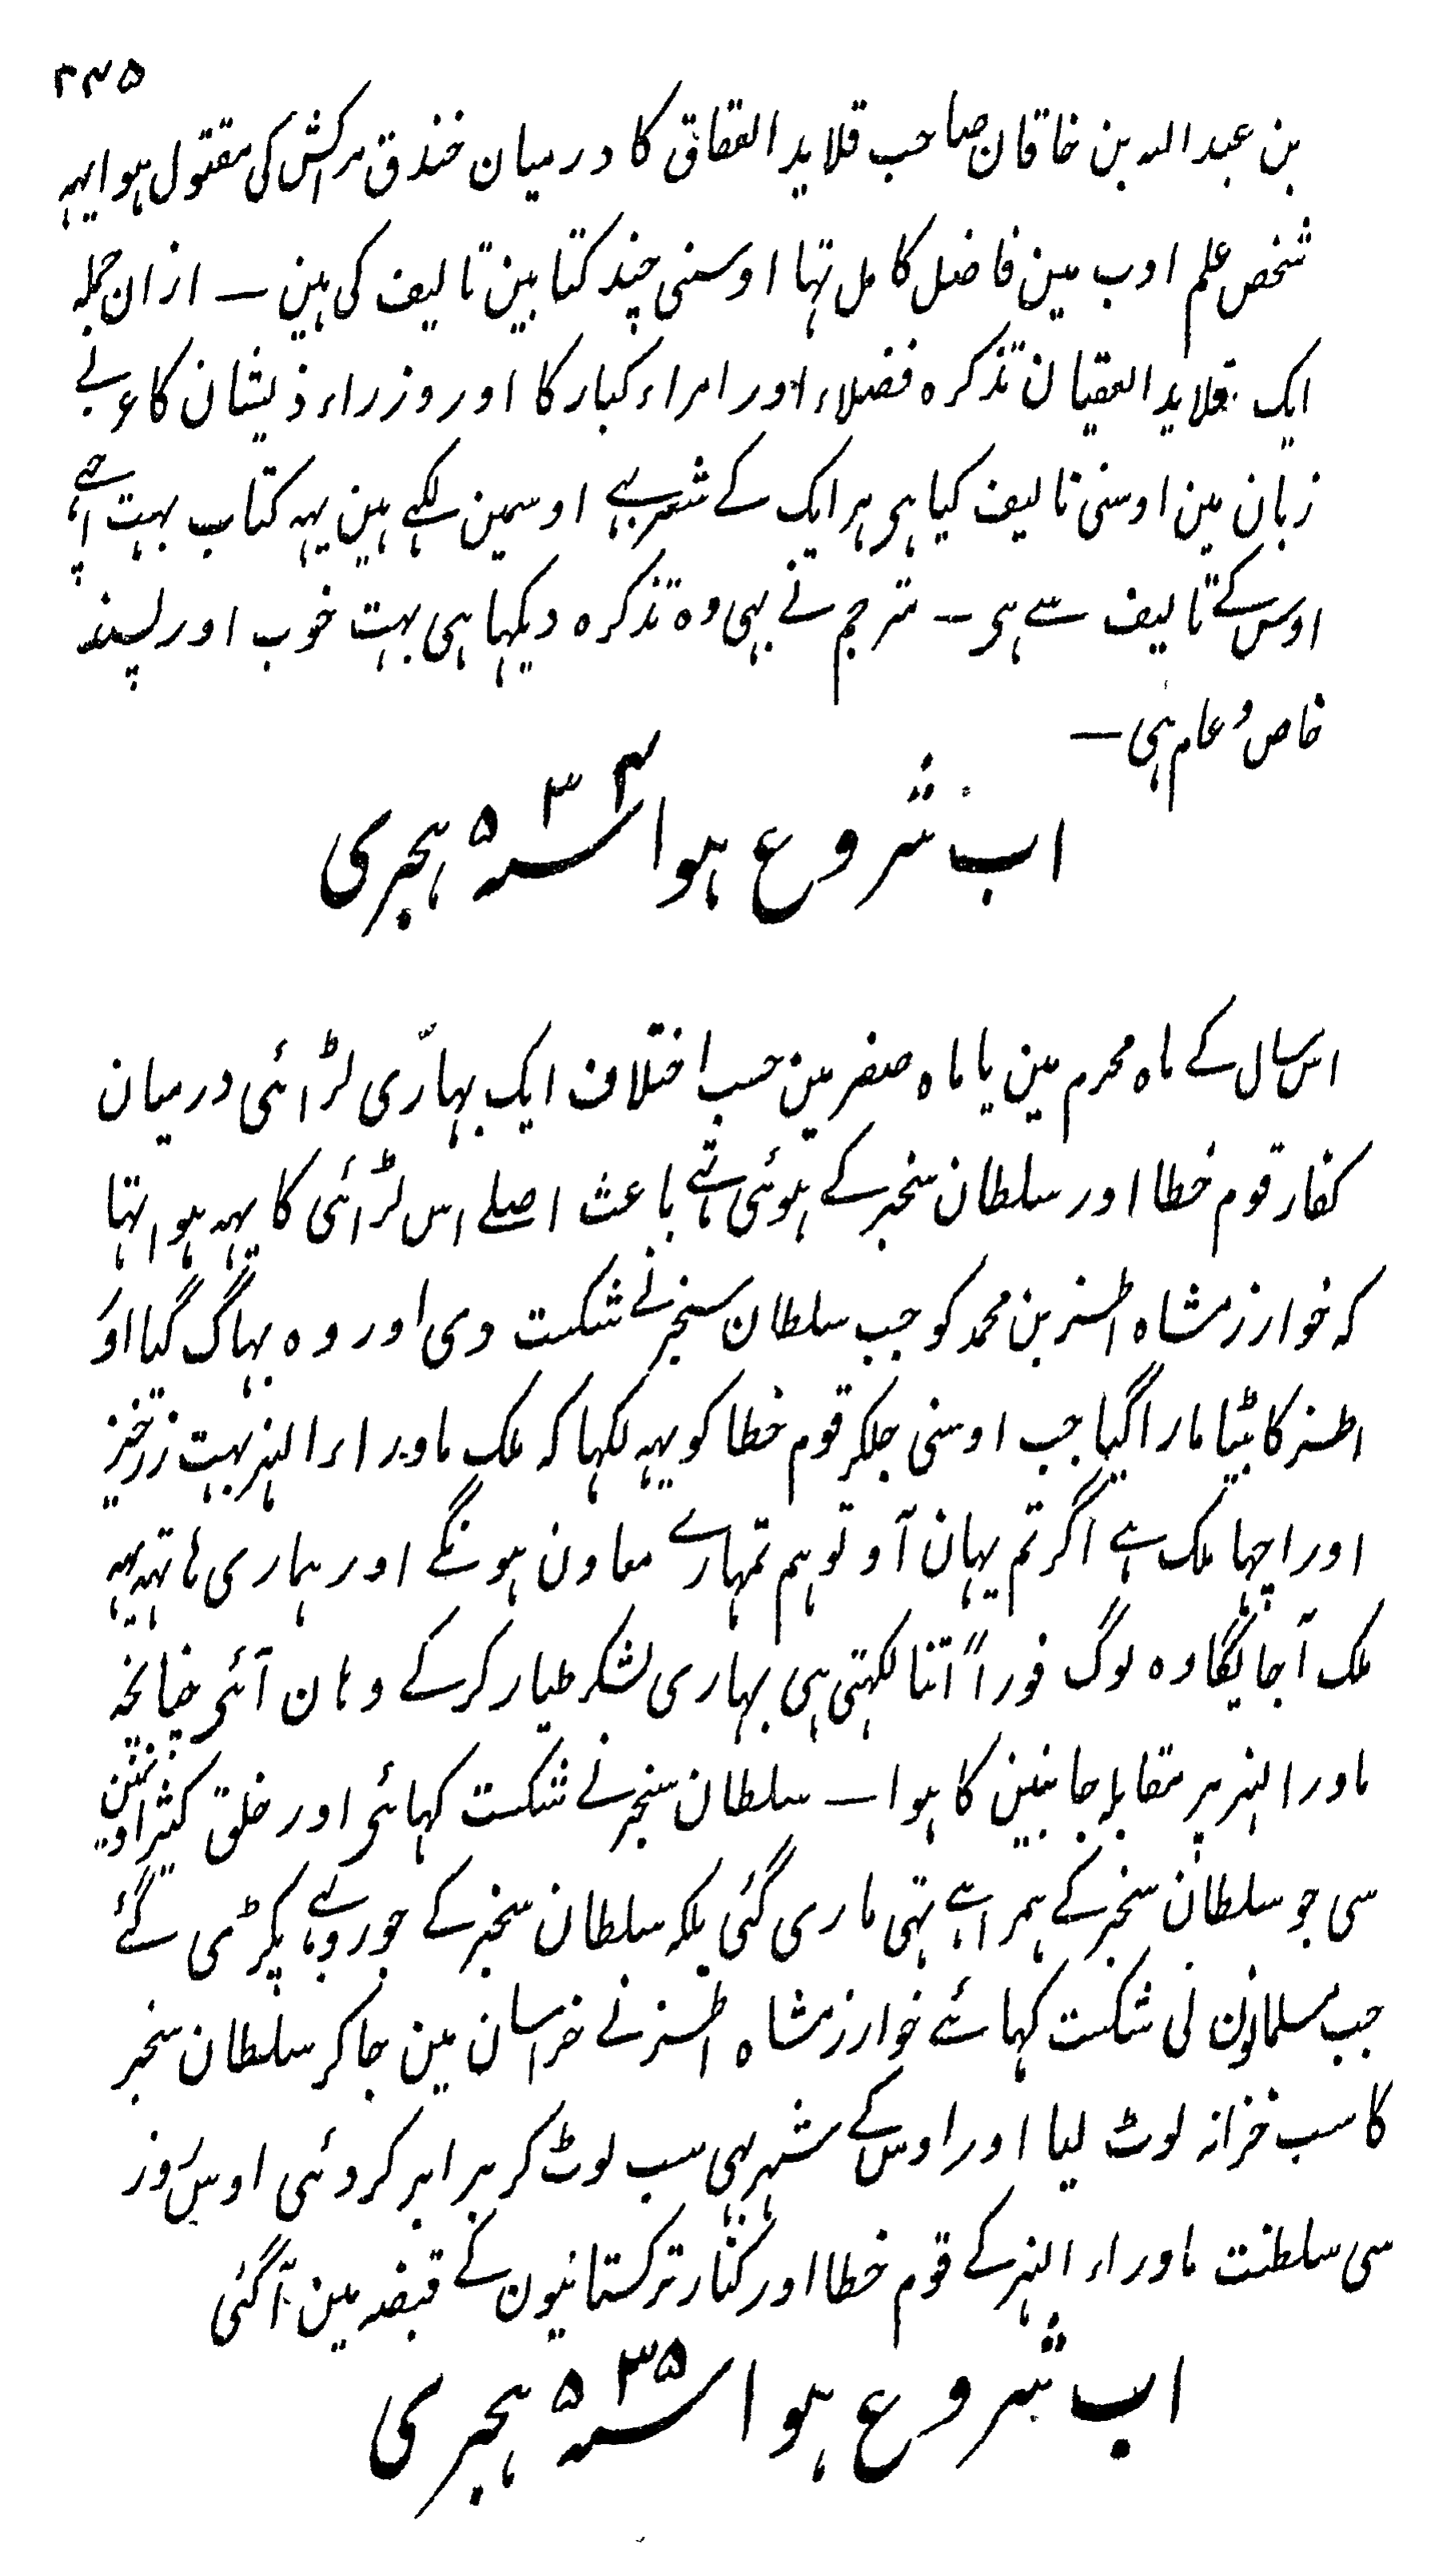 ۲۴۵
بن عبد اللہ بن خاقان صاحب قلاید العقاق کا درمیان خندق مرکش کی مقتول ہوا یہہ
شخص علم ادب مین فاضل کامل تہا اوسنی چند کتابین تالیف کی ہین ۔ ازان جملہ
ایک قلاید العقیان تذکرہ فضلاء اور امراء کبار کا اور وزراء ذیشان کا عربے
زبان مین اوسنی تالیف کیا ہی ہر ایک کے شعر بہے اوسمین لکہے ہین یہہ کتاب بہت اچہے
اوس کے تالیف سے ہی ۔ مترجم نے بہی وہ تذکرہ دیکہا ہی بہت خوب اور پسند
خاص و عام ہی ۔
اب شروع ہوا سنہ ۵۳۴ ہجری
اس سال کے ماہ محرم مین یا ماہ صفر مین حسب اختلاف ایک بہاری لڑائی درمیان
کفار قوم خطا اور سلطان سنجر کے ہوئی تہے باعث اصلے اس لڑائی کا یہہ ہوا تہا
کہ خوارزمشاہ اطسز بن محمد کو جب سلطان سنجر نے شکست دی اور وہ بہاگ گیا اور
اطسز کا بیٹا مارا گیا جب اوسنی جلکر قوم خطا کو یہہ لکہا کہ ملک ماوراء النہر بہت زرخیز
اور اچہا ملک ہے اگر تم یہان آو تو ہم تمہارے معاون ہونگے اور ہماری ہاتہہ یہہ
ملک آجائیگا وہ لوگ فوراً اتنا لکہتی ہی بہاری لشکر طیار کرکے وہان آئی چنانچہ
ماورا النہر پر مقابلہ جانبین کا ہوا ۔ سلطان سنجر نے شکست کہائی اور خلق کثیر اونمین
سی جو سلطان سنجر کے ہمراہے تہی ماری گئی بلکہ سلطان سنجر کے جورو بہے پکڑی گئے
جب مسلمانون نی شکست کہائے خوارزمشاہ اطسز نے خراسان مین جاکر سلطان سنجر
کا سب خزانہ لوٹ لیا اور اوس کے شہر بہی سب لوٹ کر برابر کردئی اوس روز
سی سلطنت ماوراء النہر کے قوم خطا اور کفار ترکستانیون کے قبضہ مین آگئی
اب شروع ہوا سنہ ۵۳۵ ہجری